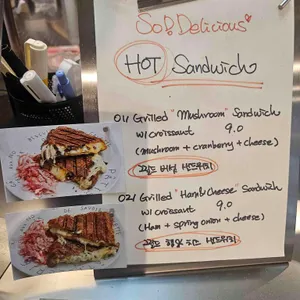 So! Delicious
HOT Sandwich
01/ Grilled "Mushroom" Sandwich
w/ croissant 9.0
(Mushroom + cranberry + cheese)
그릴드 버섯 샌드위치
02/ Grilled "Ham&Cheese" Sandwich
w/ croissant 9.0
(Ham + spring onion + cheese)
그릴드 햄앤 치즈 샌드위치